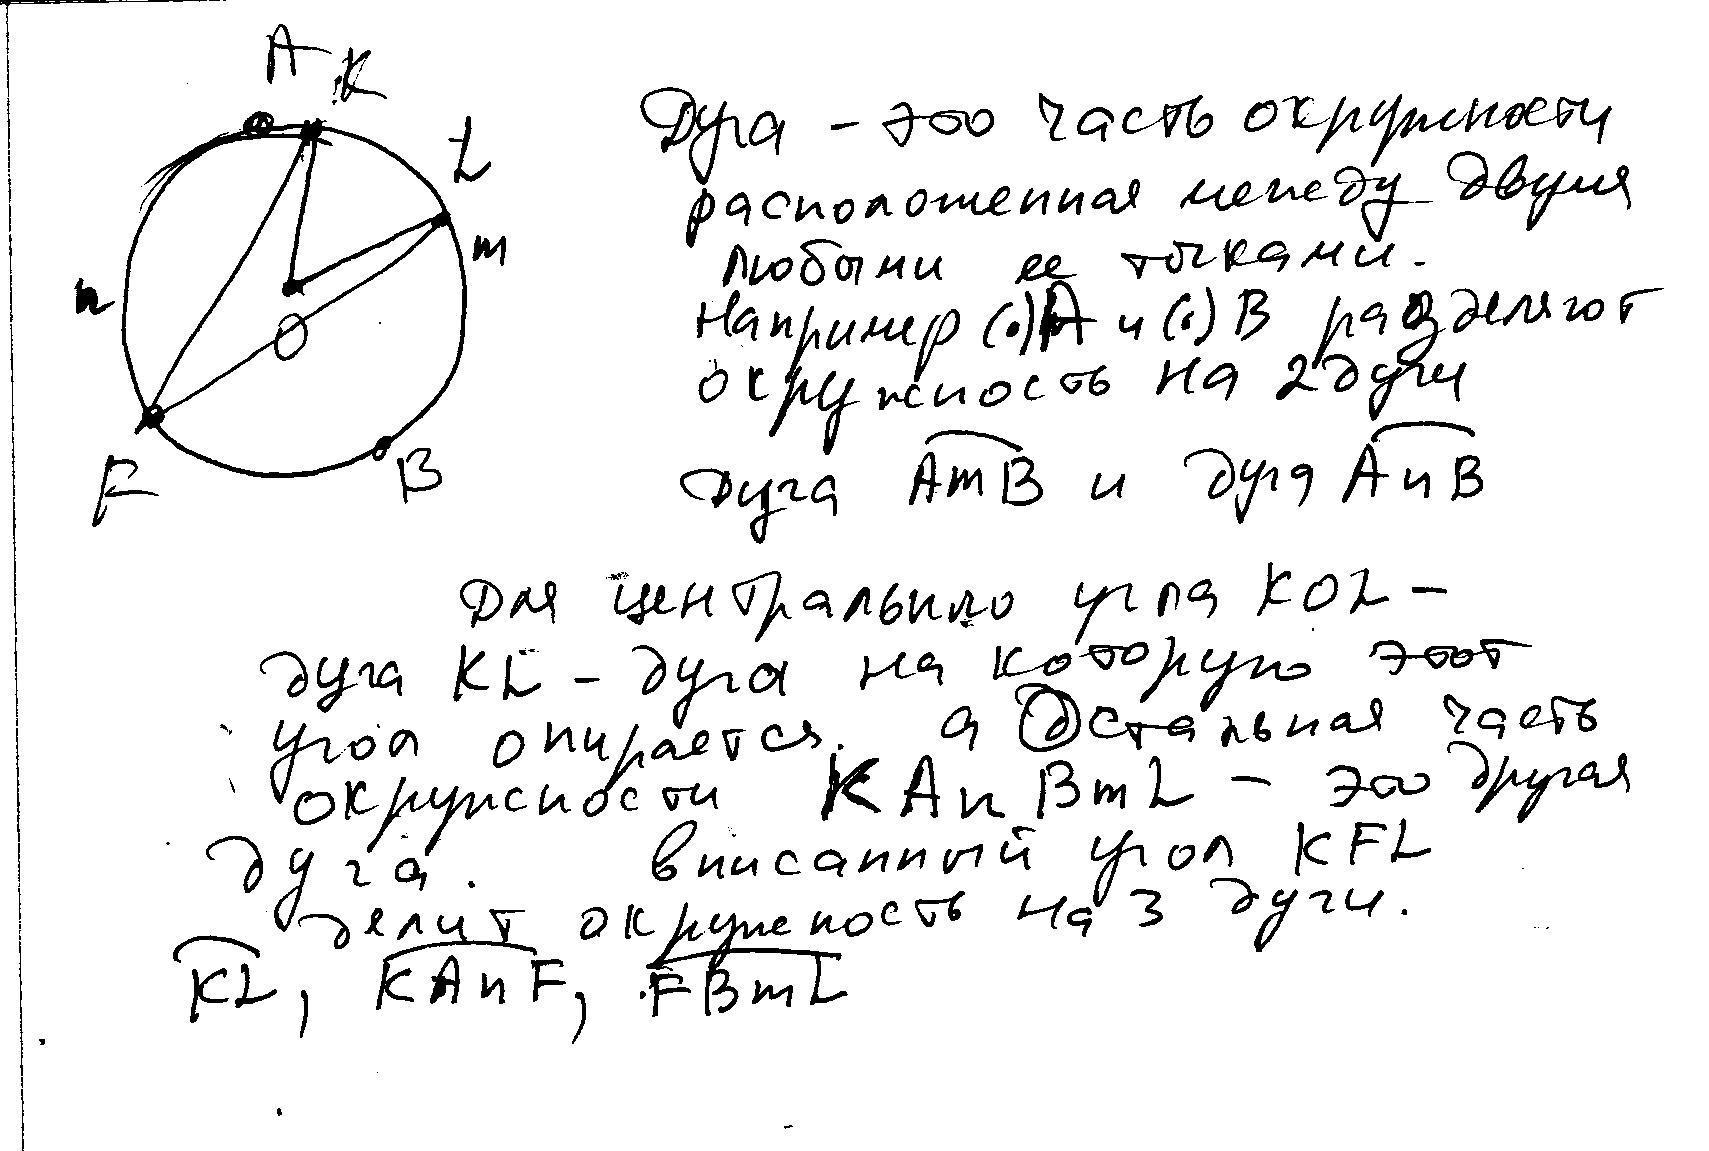 A K
L
m
n
O
F
B
Дуга – это часть окружности
расположенная между двумя
любыми ее точками.
Например (.)A и (.)B разделяют
окружность на 2 дуги
Дуга AmB и дуга AnB
Для центрального угла KOL –
дуга KL – дуга на которую этот
угол опирается. а остальная часть
окружности KAnBmL – это другая
дуга. вписанный угол KFL
делит окружность на 3 дуги.
KL, KAnF, FBmL